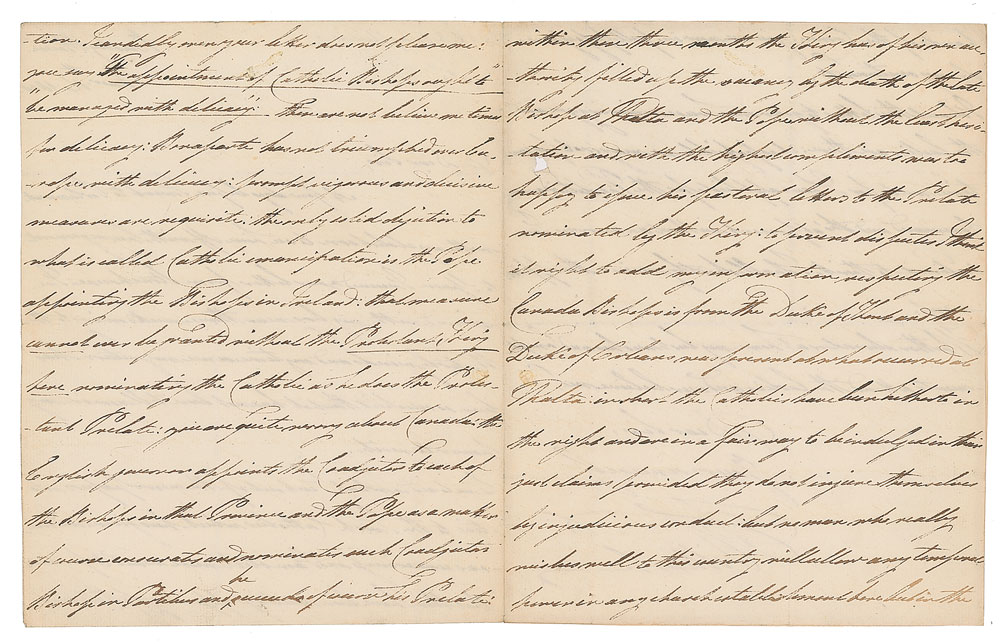 -tion. I candidly own your letter does not please me:
you say "the appointment of Catholic Bishops ought to"
"be managed with delicacy." these are not believe me times
for delicacy: Bonaparte has not triumphed over Eu-
-rope with delicacy: prompt vigorous and decisive
measures are requisite: the only solid objection to
what is called Catholic emancipation is the Pope
appointing the Bishops in Ireland: that measure
cannot ever be granted without the Protestant King
here nominating the Catholic as he does the Protes-
-tant Prelate: you are quite wrong about Canada: the
English governor appoints the Coadjutor to each of
the Bishops in that Province and the Pope as a matter
of course consecrates and nominates such Coadjutor
Bishop in Partibus and he succeeds of course his Prelate:
within these three months the King has of his own au-
-thority filled up the vacancy by the death of the late
Bishop at Malta and the Pope without the least hesi-
-tation and with the highest compliments was too
happy to issue his pastoral letters to the Prelate
nominated by the King: to prevent disputes I think
it right to add my information respecting the
Canada Bishops is from the Duke of Kent and the
Duke of Orleans was present at what occurred at
Malta: in short the Catholics have been hitherto in
the right and are in a fair way to be indulged in their
just claims provided they do not injure themselves
by injudicious conduct: but no man who really
wishes well to this country will allow any temporal
power in any church establishment here but in the